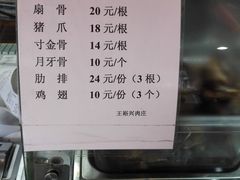 扇 骨 20 元/根
猪 爪 18 元/根
寸金骨 14 元/根
月牙骨 10 元/个
肋 排 24 元/份（3 根）
鸡 翅 10 元/份（3 个）
王裕兴肉庄